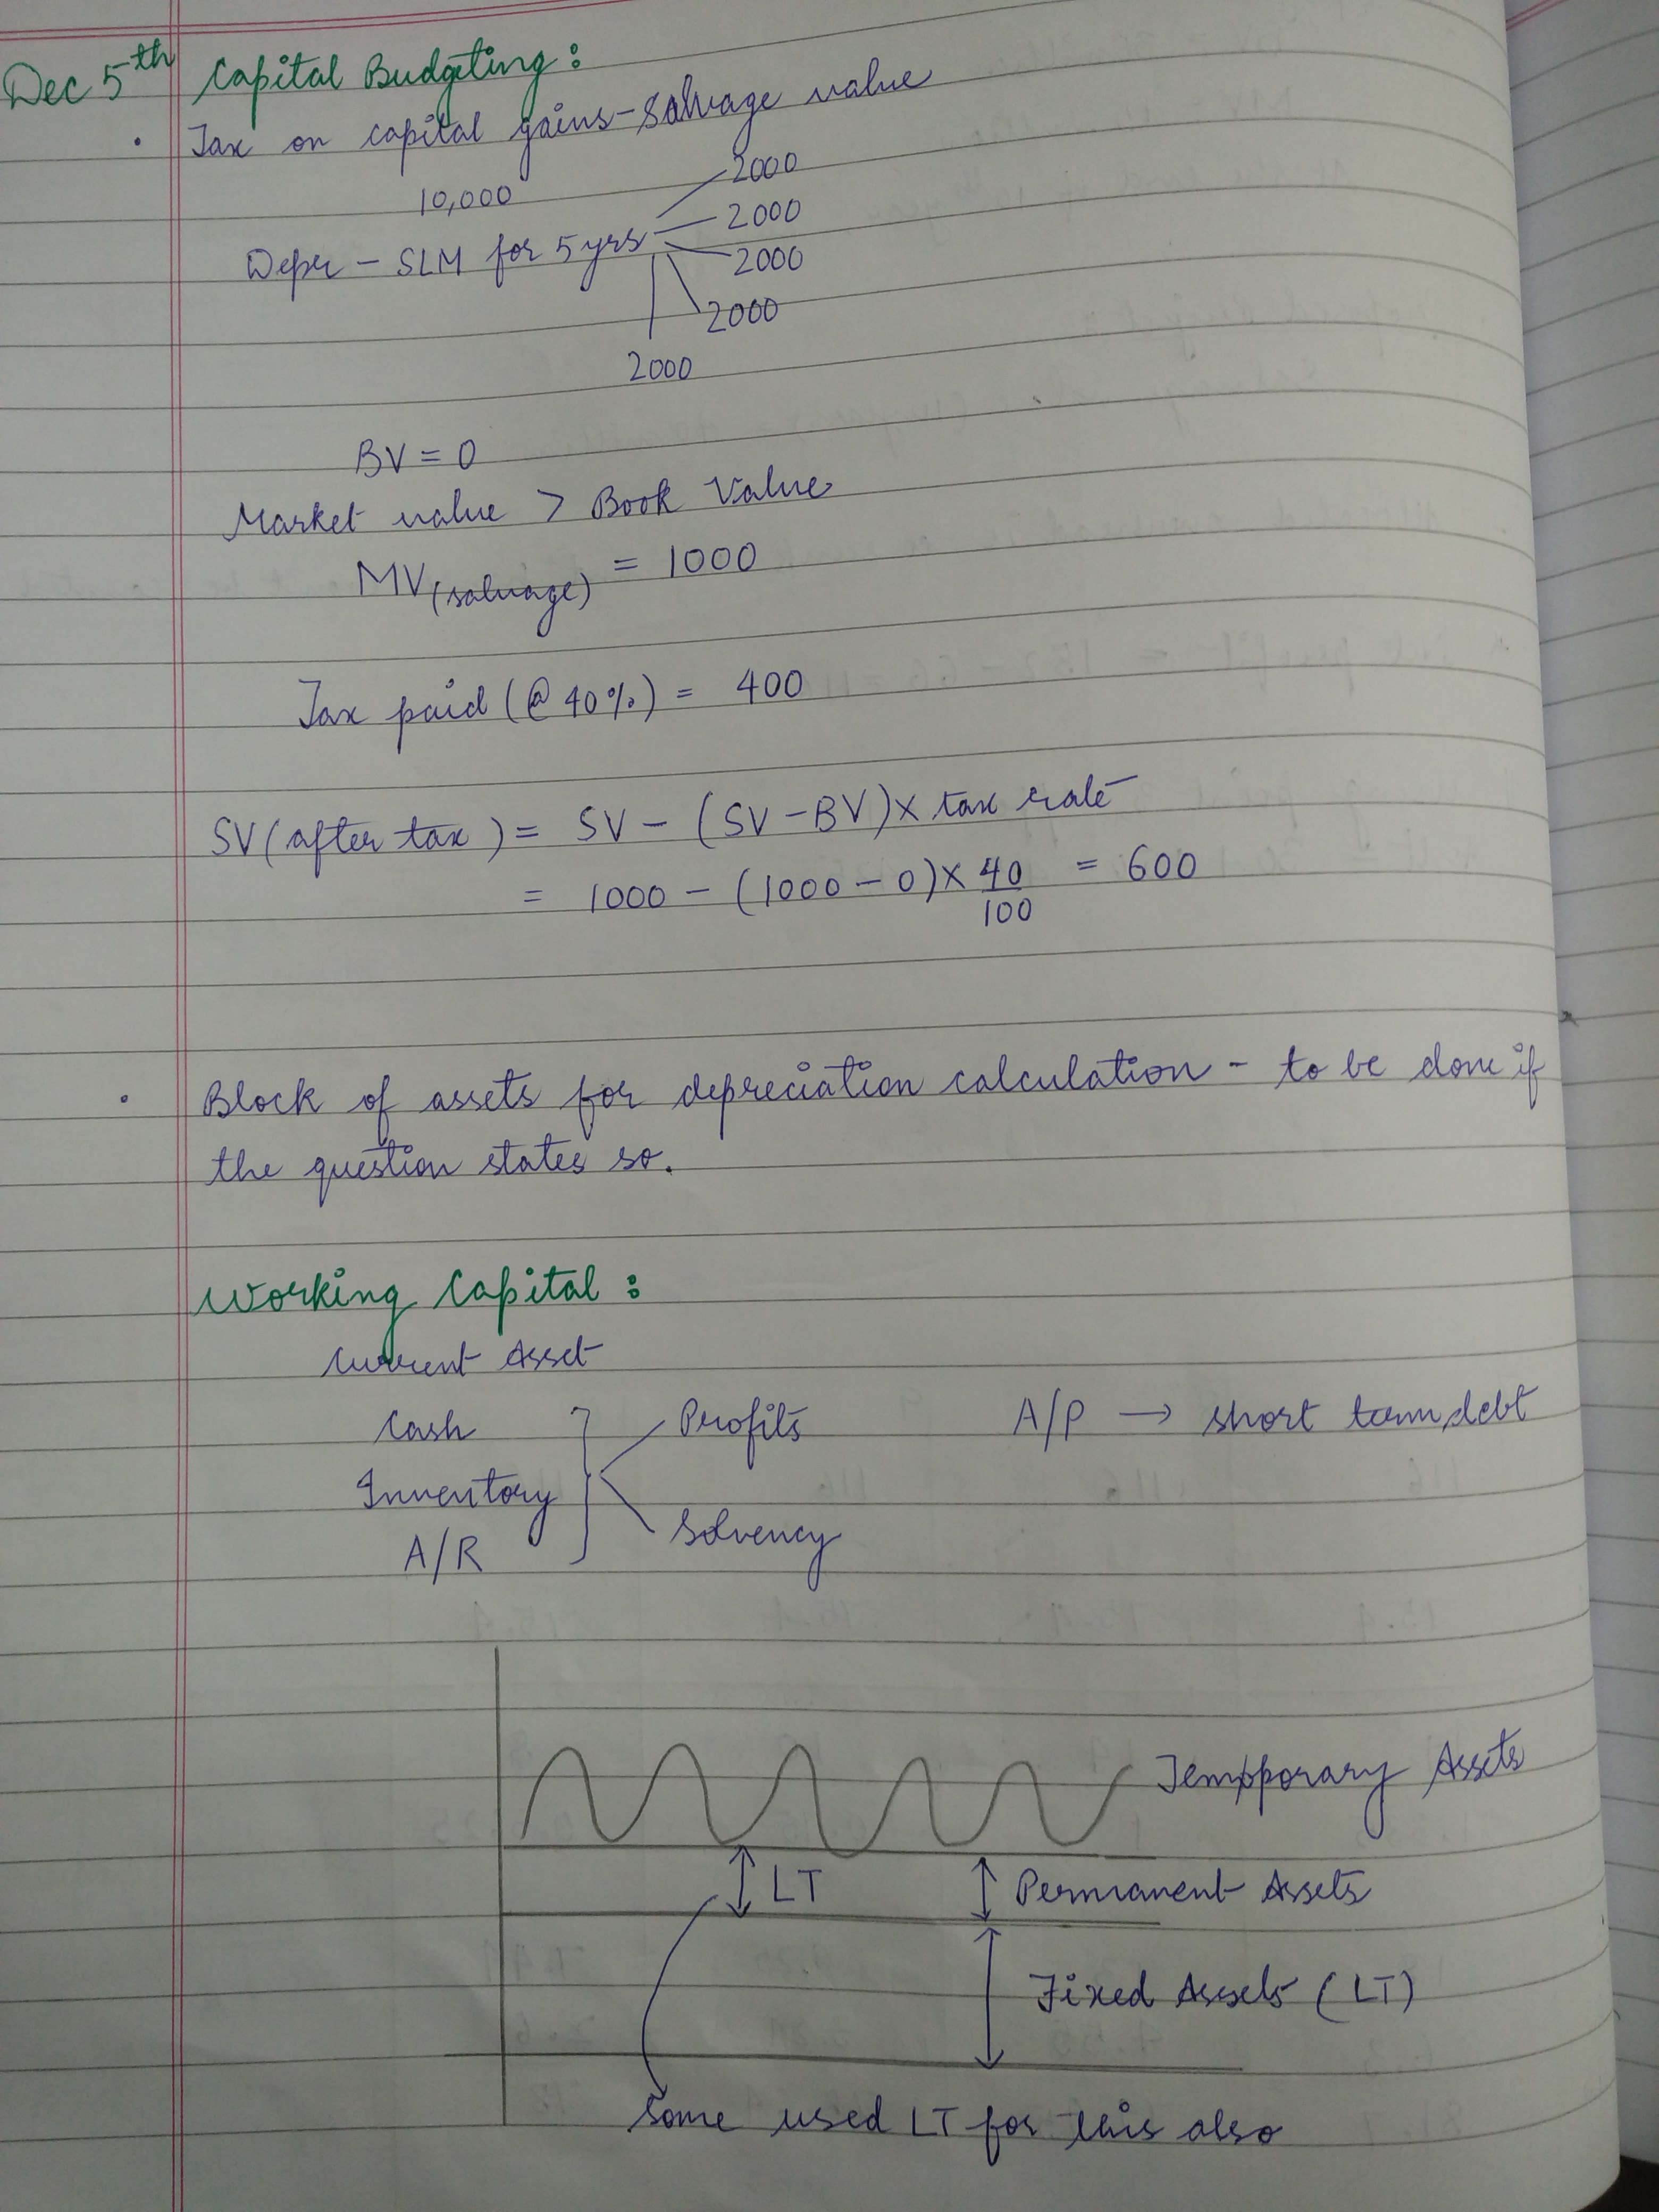 Dec 5th Capital Budgeting:
• Tax on capital gains - Salvage value
10,000
2000
Depr - SLM for 5 yrs
2000
2000
2000
2000
BV = 0
Market value > Book Value
MV(salvage) = 1000
Tax paid (@ 40%) = 400
SV (after tax) = SV - (SV - BV) × tax rate
= 1000 - (1000 - 0) × 40/100 = 600
• Block of assets for depreciation calculation - to be done if
the question states so.
Working Capital:
Current Asset
Cash
Profits
A/P → short term debt
Inventory
Solvency
A/R
Tempporary Assets
LT
Permanent Assets
Fixed Assets (LT)
Some used LT for this also